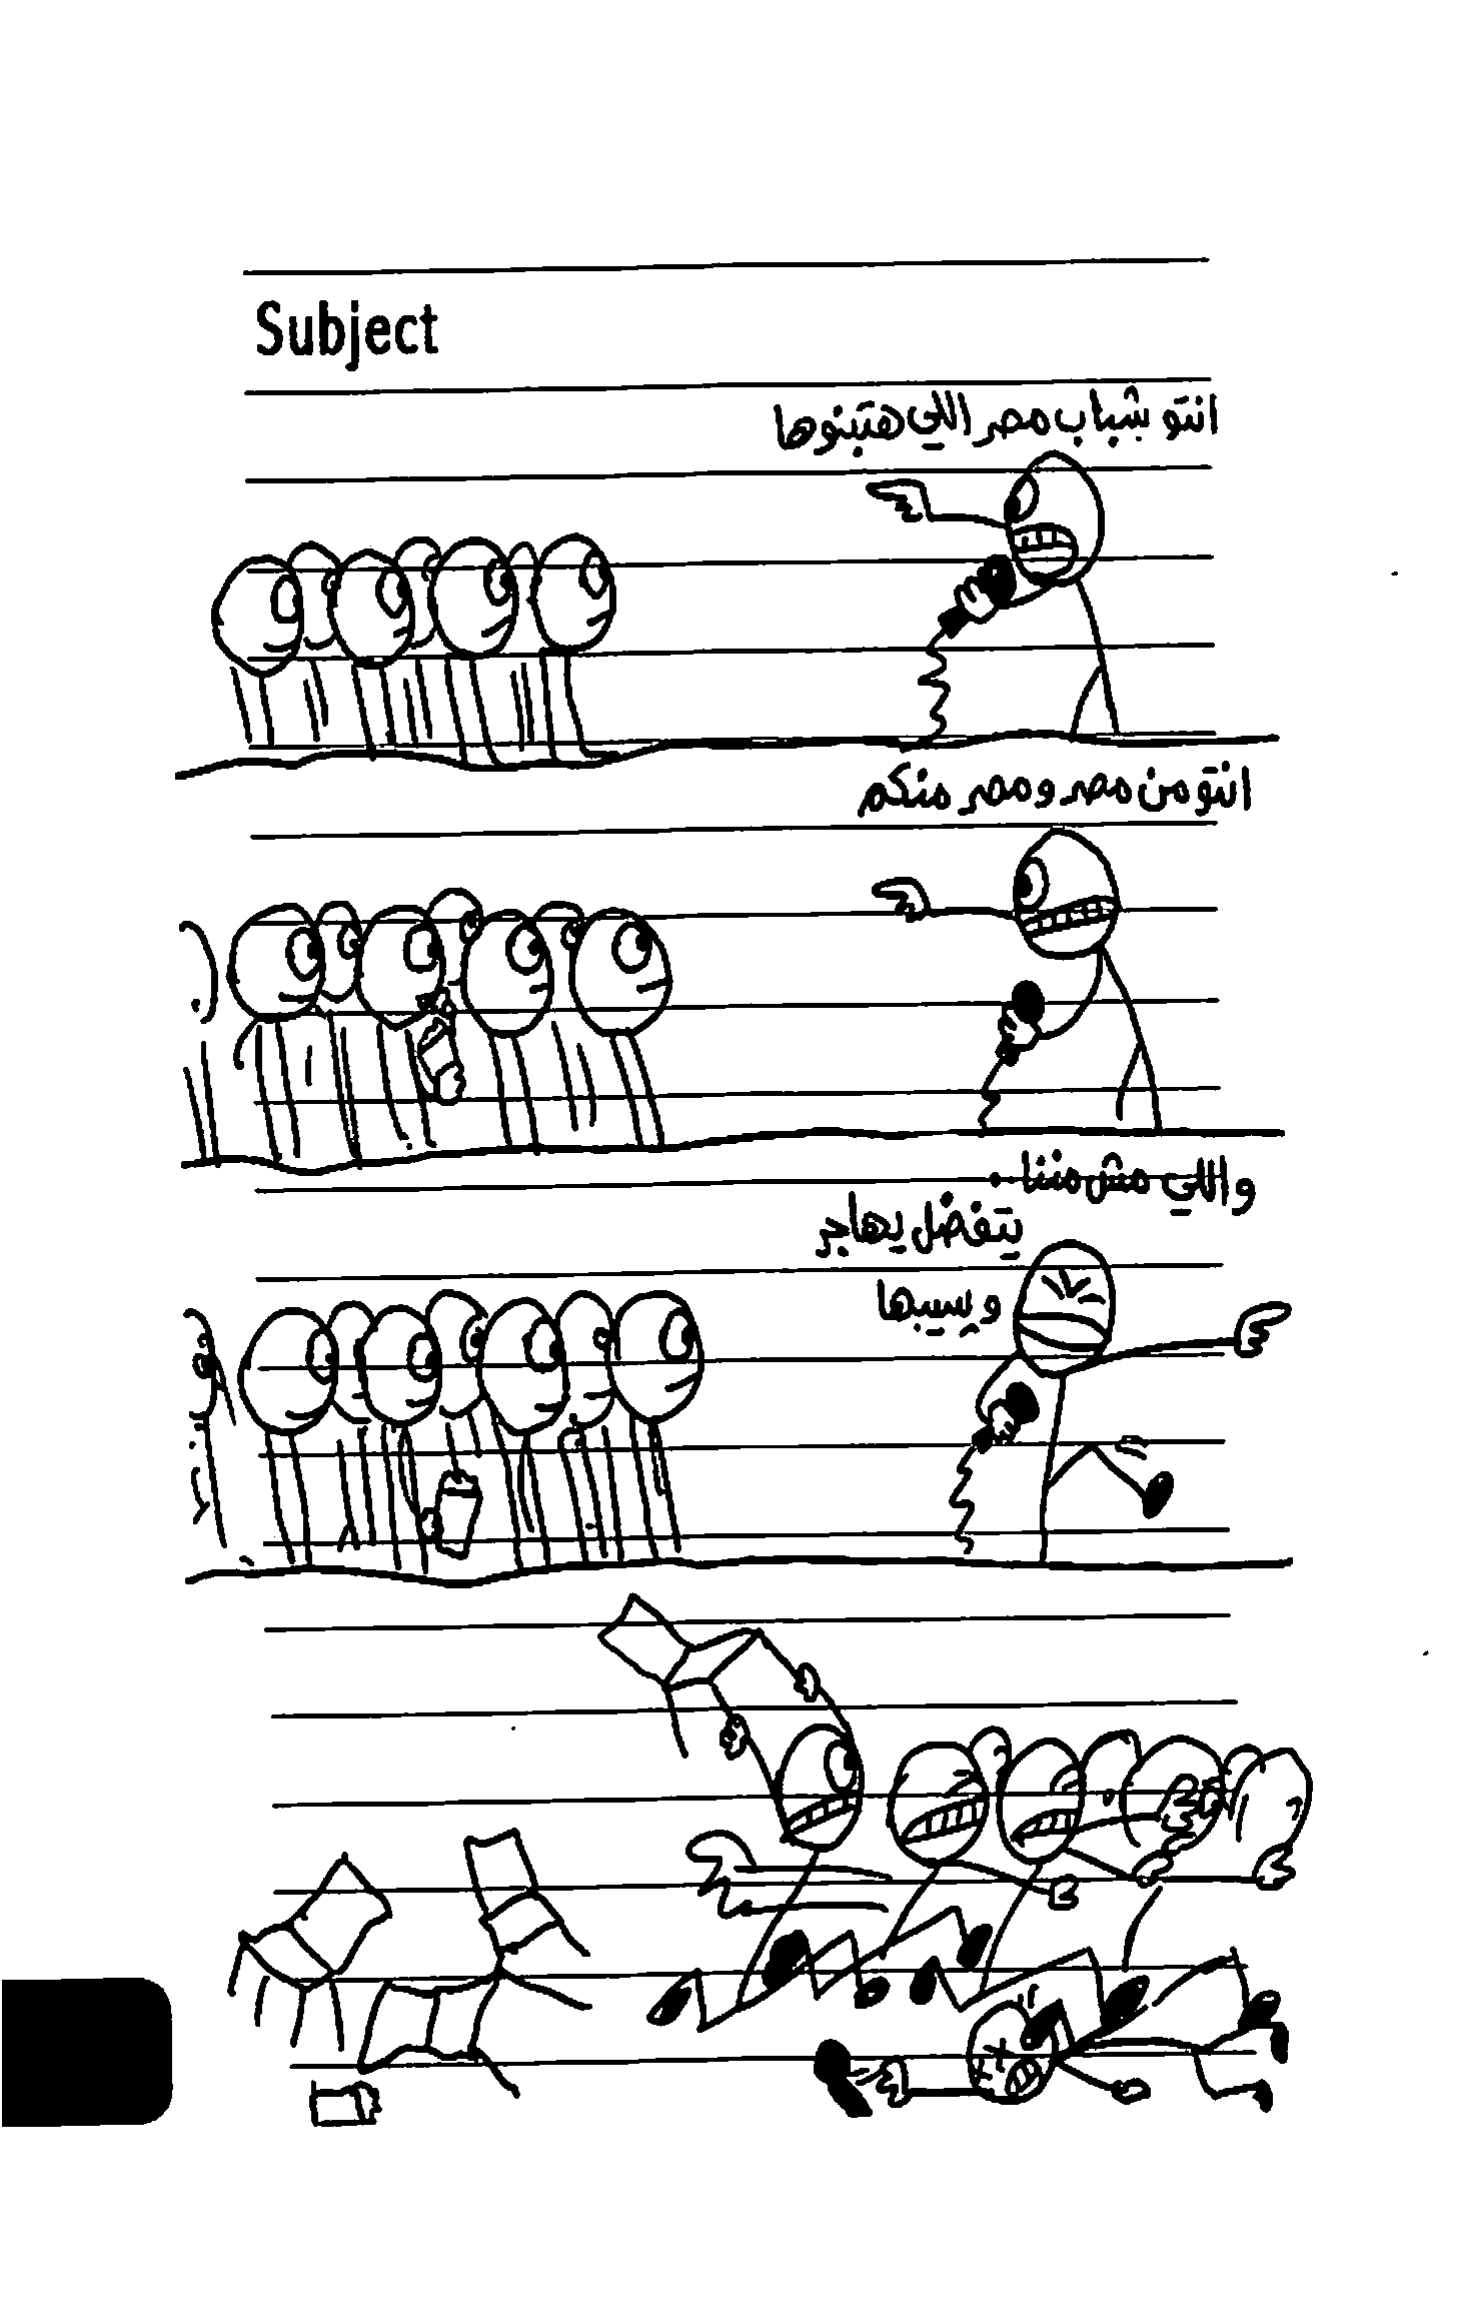 Subject
انتو شباب مصر اللي هتبنوها
انتو من مصر ومصر منكم
واللي مش مننا..
يتفضل يهاجر
وسيبها